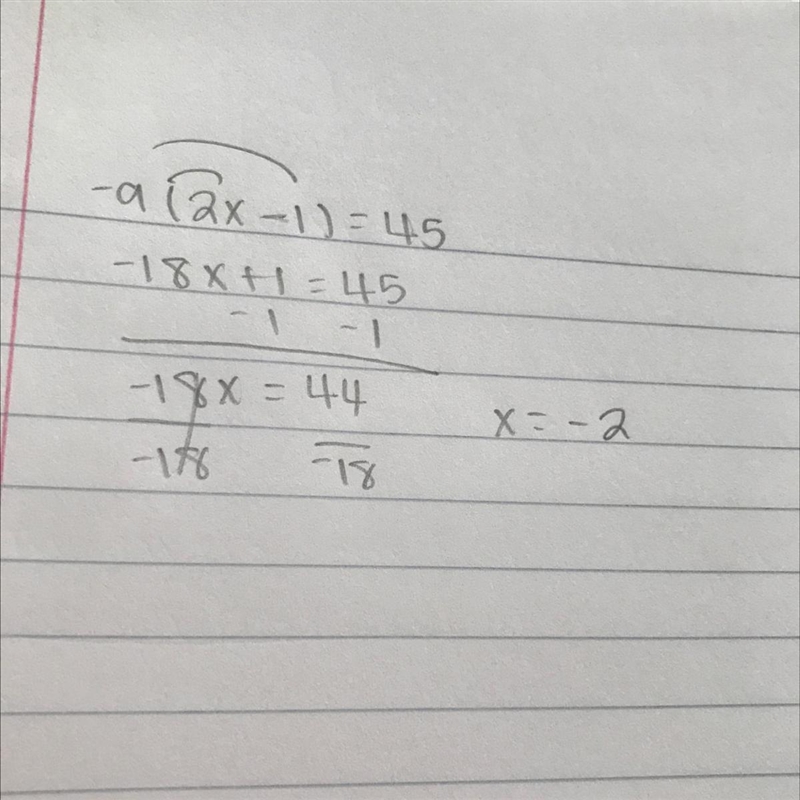 -9(2x-1)=45
-18x+1=45
-1 -1
-18x = 44
-18 -18
x=-2